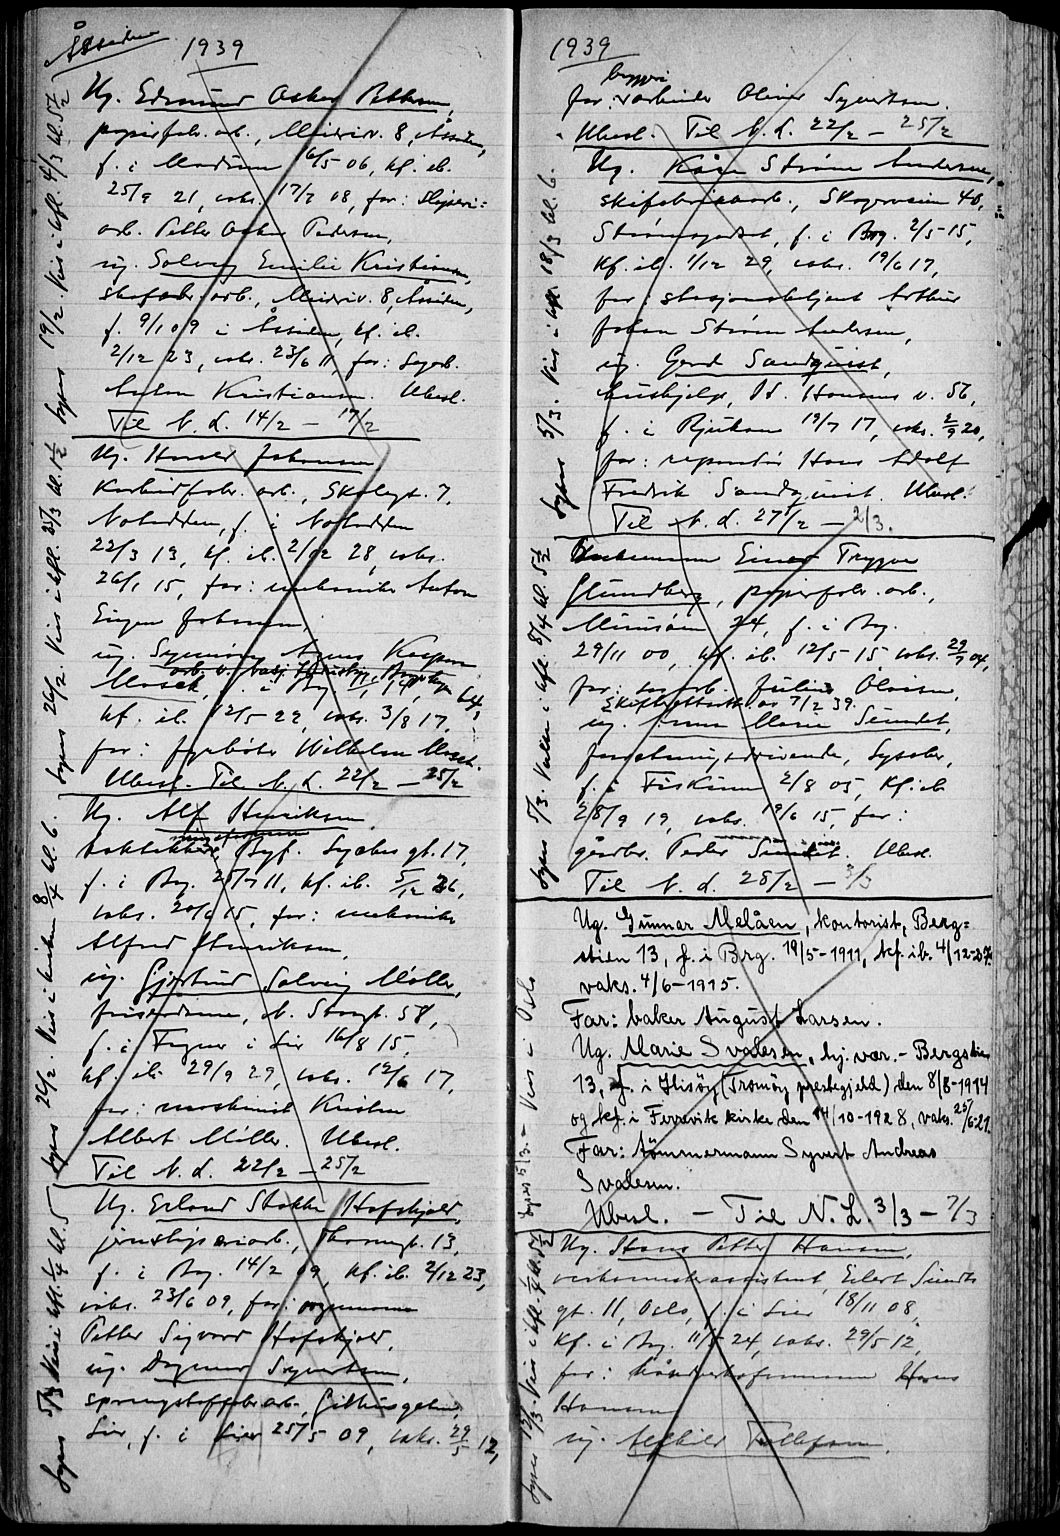 Åssiden 1939
Ug. Edmund Oskar Pettersen,
papirfabr. arb., Meieriv. 8, Åssiden,
f. i Modum 16/5 06, kf. ib.
25/9 21, vaks. 17/7 08, far: sliperi-
arb. Petter Oskar Pedersen,
ug. Solveig Emilie Kristiansen,
skofabr. arb., Meieriv. 8, Åssiden,
f. 9/1 09 i Åssiden, kf. ib.
2/12 23, vaks. 23/6 11, far: sagarb.
Anton Kristiansen. Ubesl.
Til N. L. 14/2 – 17/2
Lyses 19/2. Vies i kfl. 4/3 kl. 5½
Ug. Harald Johansen
Karbidfabr. arb., Skolegt. 7,
Notodden, f. i Notodden
22/3 13, kf. ib. 2/12 28, vaks.
26/1 15, far: mekaniker Anton
Eugen Johansen,
ug. Agnes Kaspara
Mosek, f. i Brg
kf. ib. 12/5 29, vaks. 3/8 17,
far: fyrbøter Wilhelm Mosek.
Ubesl. Til N. L. 22/2 – 25/2
Lyses 26/2. Vies i kfl. 25/3 kl. 1½
Ug. Alf Henriksen
Byf. Lyches gt. 17,
f. i Brg. 25/7 11, kf. ib. 5/12 26,
vaks. 20/6 15, far: mekaniker
Alfred Henriksen,
ug. Gjertrud Solveig Møller,
friserdame, N. Storgt. 58,
f. i Tegner i Lier 16/8 15,
kf. ib. 29/9 29, vaks. 12/6 17,
far: maskinist Kristen
Albert Møller. Ubesl.
Til N. L. 22/2 – 25/2
Lyses 26/2. Vies i kirken 8/4 kl. 6.
Ug. Erland Stokke Hofskjold,
jernsliperiarb., Thornegt. 13,
f. i Brg. 14/2 09, kf. ib. 2/12 23,
vaks. 23/6 09, far:
Petter Sigvard Hofskjold,
ug. Dagmar Syvertsen,
sprengstoffabr arb., Gilhusgalen,
Lier, f. i Lier 25/5 09, vaks. 29/5 12,
Lyses 5/3 Vies i kfl. 1/4 kl. 5
1939
bryggeri
far: arbeider Oliver Syvertsen.
Ubesl. Til N. L. 22/2 – 25/2
Ug. Kåre Strøm Andersen,
skifabrikkarb., Skogerveien 40,
Strømsgodset, f. i Brg. 2/5 15,
kf. ib. 1/12 29, vaks. 19/6 17,
far: stasjonsbetjent Arthur
Johan Strøm Andersen,
ug. Gerd Sandquist,
hushjelp, H. Hansens v. 56,
f. i Rjukan 19/7 17, vaks. 2/9 20,
far: reparatør Hans Adolf
Fredrik Sandquist. Ubesl.
Til N. L. 27/2 – 2/3.
Lyses 5/3. Vies i kfl. 18/3 kl. 6.
Enkemann Einar Trygve
Glundberg, papirfabr. arb.,
24, f. i Brg.
29/11 00, kf. ib. 12/5 15, vaks. 29/7 04,
far: sagarb. Julius Olsen,
Skifteattest av 7/2 39.
ug. Anna Marie Sundet,
forretningsdrivende, Sysle,
f. i Fiskum 2/8 05, kf. ib
28/9 19, vaks. 19/6 15, far:
gårdbr. Peder Sundet. Ubesl.
Til N. L. 28/2 – 3/3
Lyses 5/3. Vies i kfl. 8/4 kl. 5½
Ug. Gunnar Melåen, kontorist, Berg=
stien 13, f. i Brg. 19/5-1911, kf. ib. 4/12-27.
vaks. 4/6-1915.
Far: baker August Larsen.
Ug. Marie Svalesen, hj. vær. - Bergstien
13, f. i Hisøy (Tromøy prestegjeld) den 8/8-1914
og kf. i Færevik kirke den 14/10-1928, vaks. 25/6-21.
Far: tømmermann Syvert Andreas
Svalesen.
Ubesl. – Til N. L. 3/3 – 7/3
Lyses 5/3. – Vies i Oslo
Ug. Hans Petter Hansen,
verksmesterassistent, Eilert Sundts
gt. 11, Oslo, f. i Lier 18/11 08,
kf. i Brg. 11/5 24, vaks. 29/5 12,
far: håndverksformann Hans
Hansen
ug. Alfhild Tollefsen,
Lyses 12/3. Vies i kfl. 1/4 kl. 5½